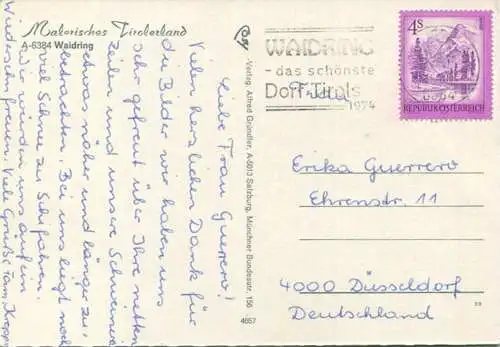 Malerisches Tirolerland
A-6384 Waidring
Liebe Frau Guerrero!
Vielen herzlichen Dank für
die Bilder wir haben uns
sehr gefreut über Ihre netten
Zeilen und unsere Schweinerei
etwas näher und länger zu
betrachten. Bei uns liegt noch
viel Schnee zu Schifahren.
wir würden uns auf ein
Wiedersehen freuen. Viele Grüße Fam.
Verlag Alfred Gründler, A-5013 Salzburg, Münchner Bundesstr. 156
4657
WAIDRING
- das schönste
Dorf Tirols
1974
4S
REPUBLIK ÖSTERREICH
Erika Guerrero
Ehrenstr. 11
4000 Düsseldorf
Deutschland